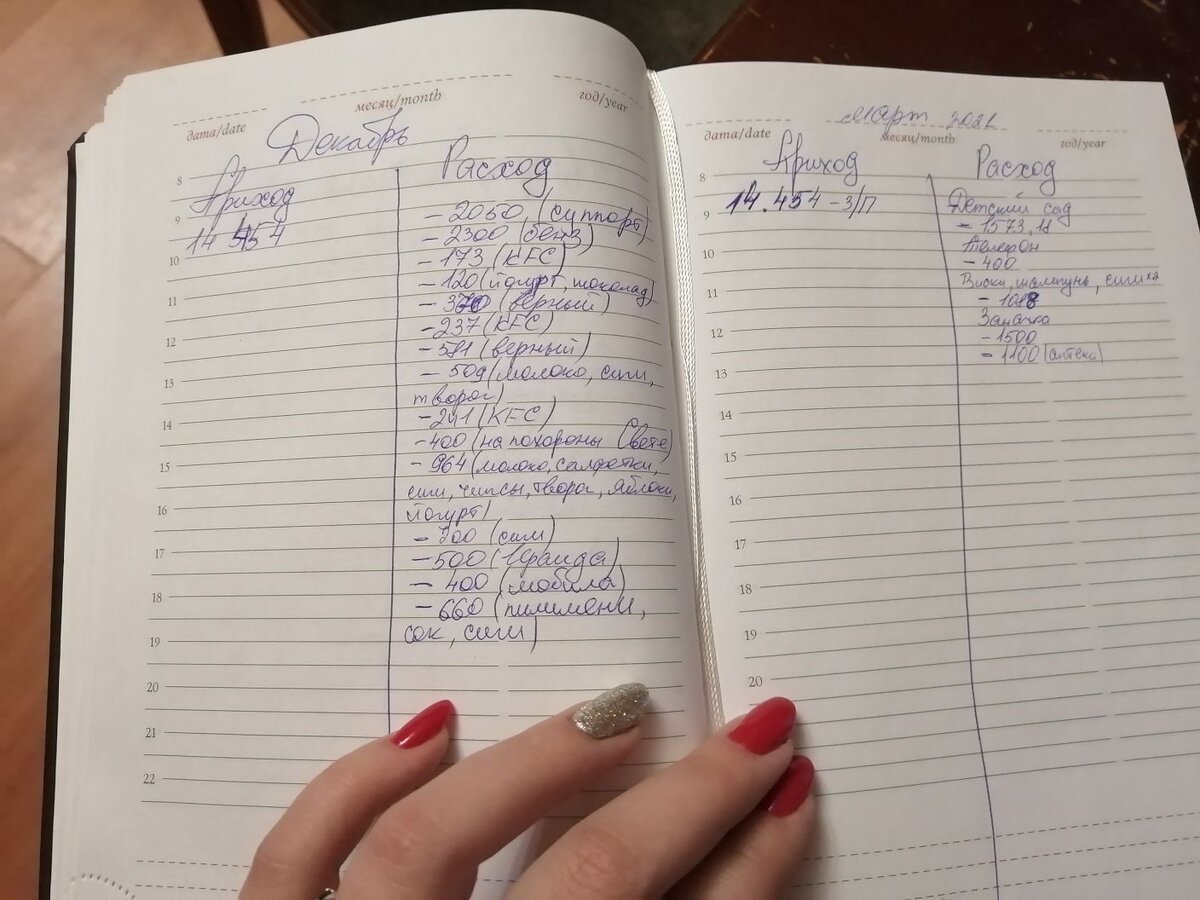 месяц/month
год/year
дата/date
Декабрь
Приход
Расход
8
9
14 454
10
11
12
13
14
15
16
17
18
19
20
21
22
- 2050 (суппорт)
- 2300 (бенз)
- 173 (KFC)
- 120 (йогурт, шоколад)
- 370 (верный)
- 237 (KFC)
- 581 (верный)
- 509 (молоко, сиги,
творог)
- 241 (KFC)
- 400 (на похороны Свете)
- 964 (молоко, салфетки,
сиги, чипсы, творог, яблоки,
йогурт)
- 200 (сиги)
- 500 (Ираида)
- 400 (мобила)
- 660 (пилимени,
сок, сиги)
март
дата/date
месяц/month
год/year
Приход
Расход
8
9
14.454 - З/П
10
11
12
13
14
15
16
17
18
19
20
Детский сад
- 1573,18
Телефон
- 400
Виски, шампунь,
Заначка
- 1500
- 1100 (аптека)